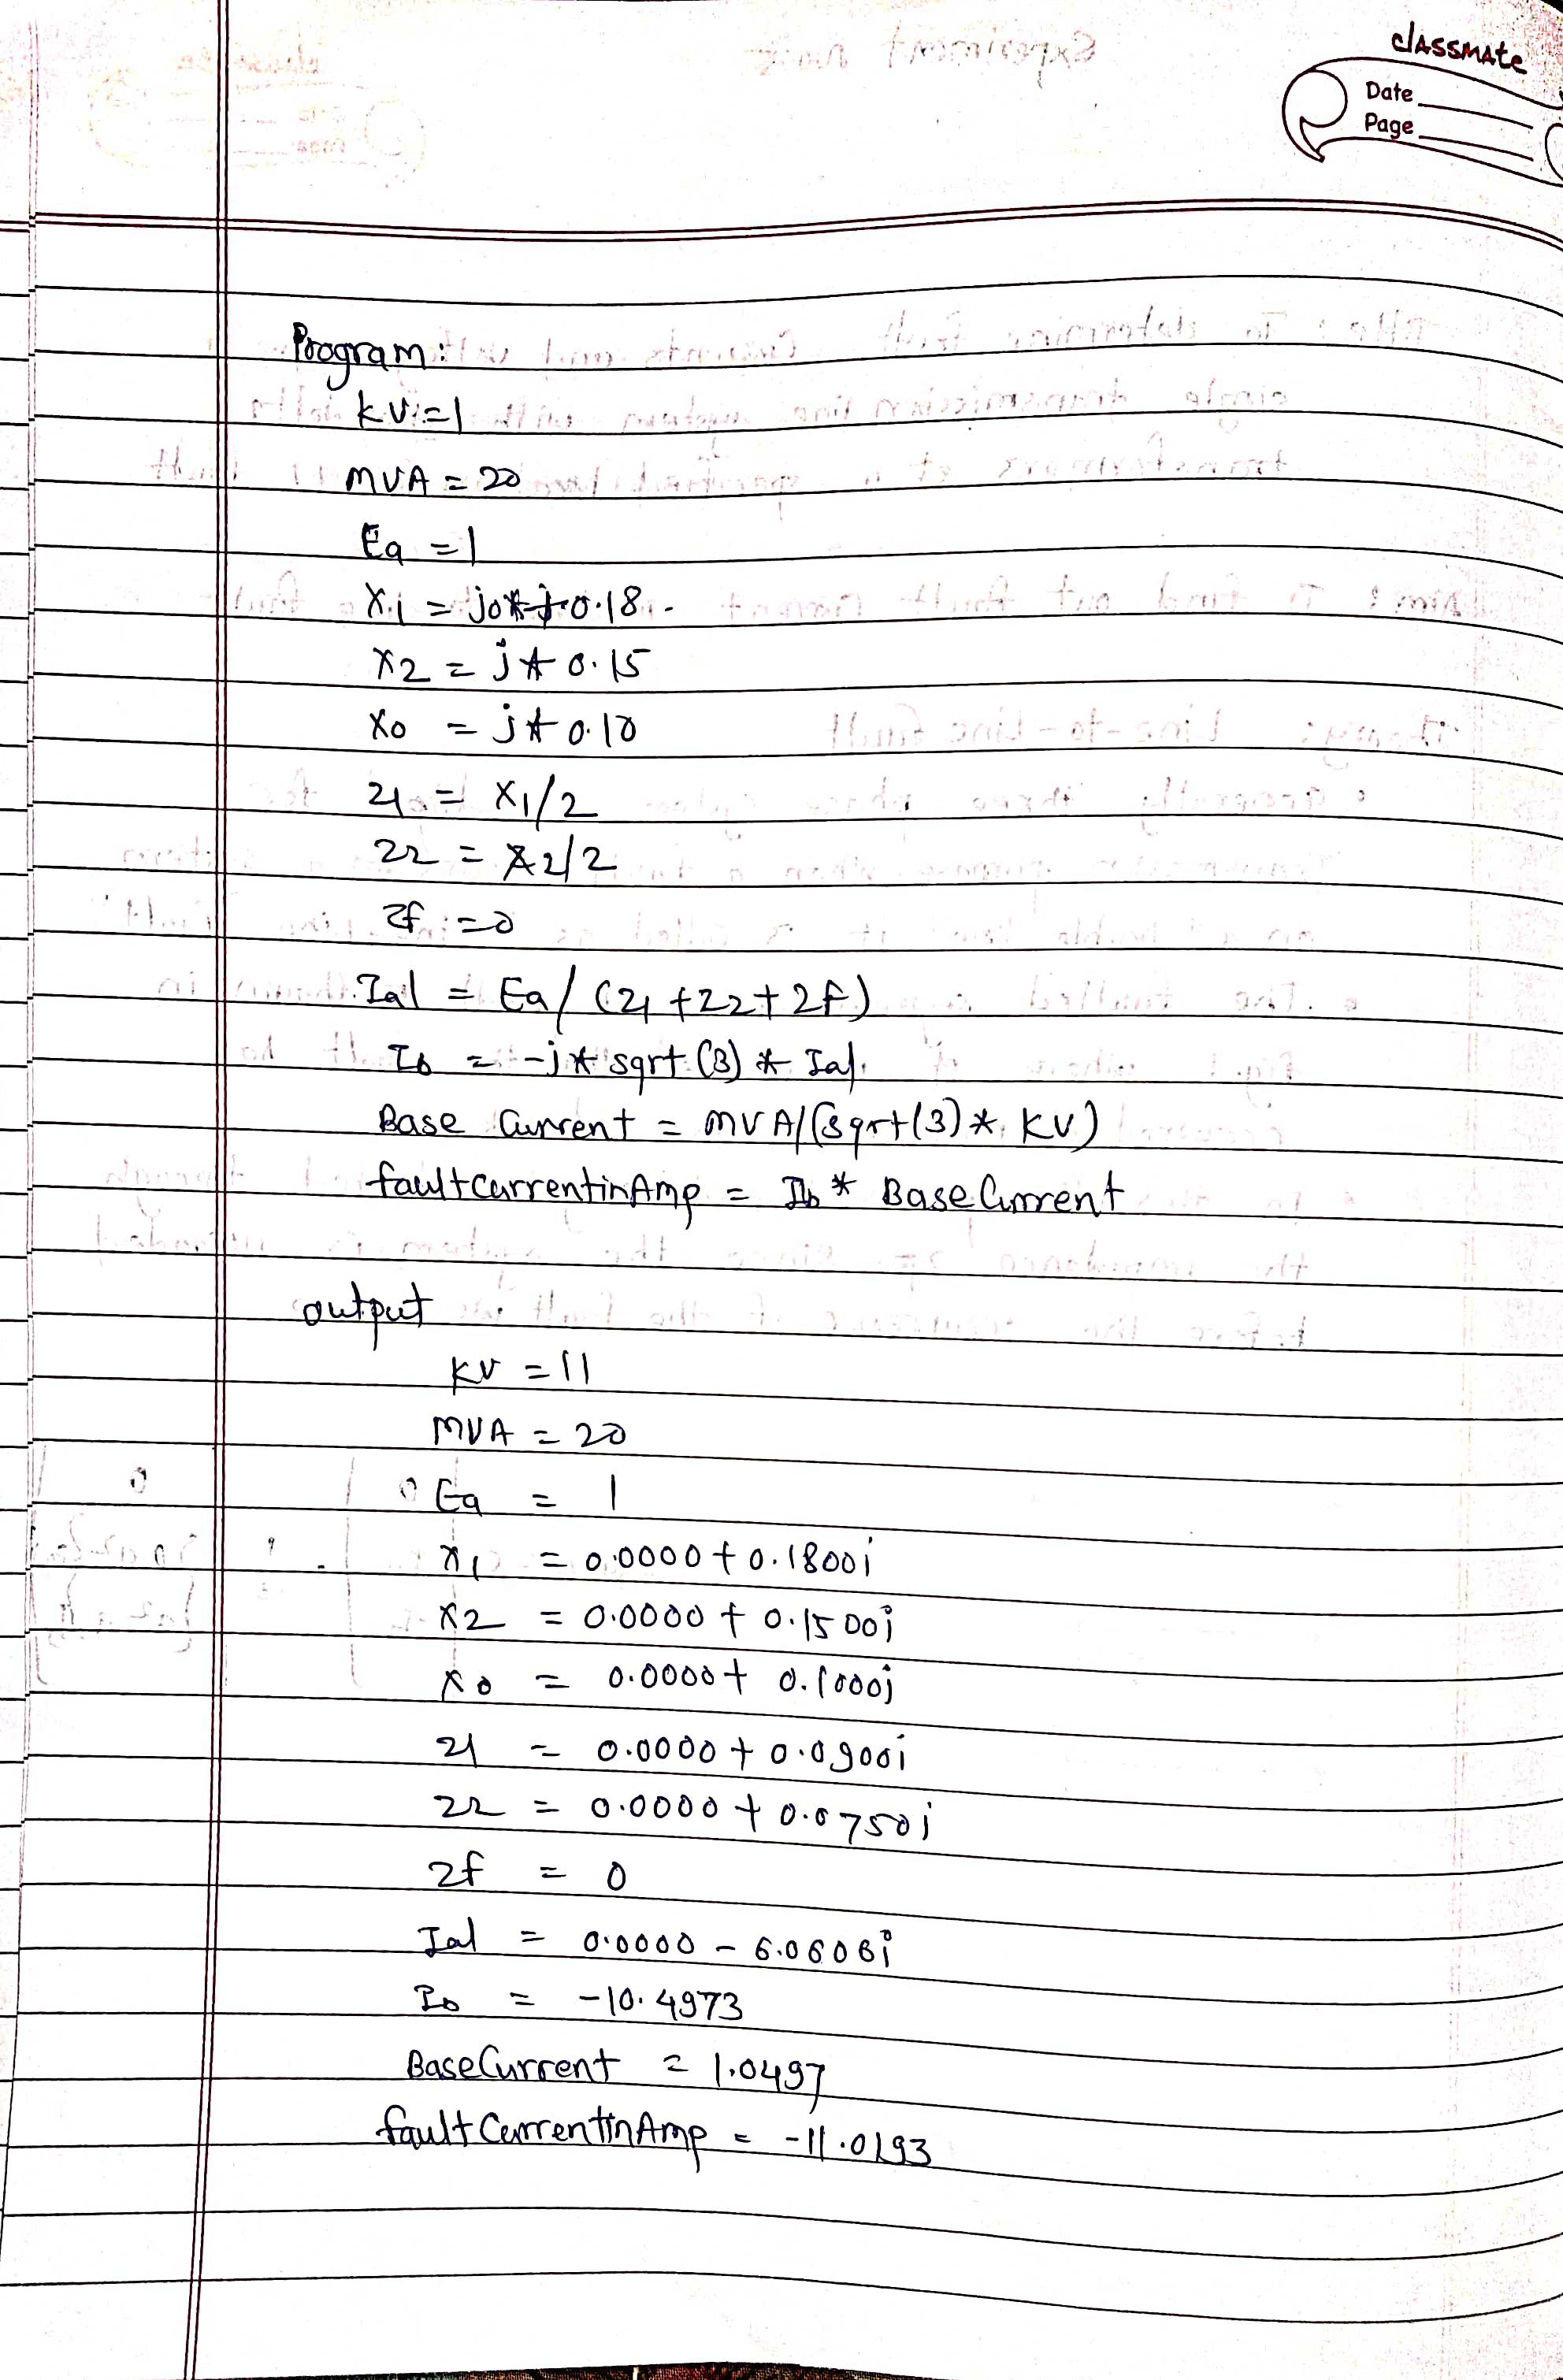 classmate
Date
Page
Program:
KV=1
MVA = 20
Ea = 1
X1 = j0.18
X2 = j * 0.15
X0 = j * 0.10
Z1 = X1/2
Z2 = X2/2
Zf = 0
Ia1 = Ea/(Z1+Z2+Zf)
Ib = -j * sqrt(3) * Ia1
Base Current = MVA/(sqrt(3) * KV)
faultcurrentinAmp = Ib * Base Current
output
KV = 11
MVA = 20
Ea = 1
X1 = 0.0000 + 0.1800i
X2 = 0.0000 + 0.1500i
X0 = 0.0000 + 0.1000i
Z1 = 0.0000 + 0.0900i
Z2 = 0.0000 + 0.0750i
Zf = 0
Ia1 = 0.0000 - 6.0606i
Ib = -10.4973
BaseCurrent = 1.0497
faultCurrentinAmp = -11.0193